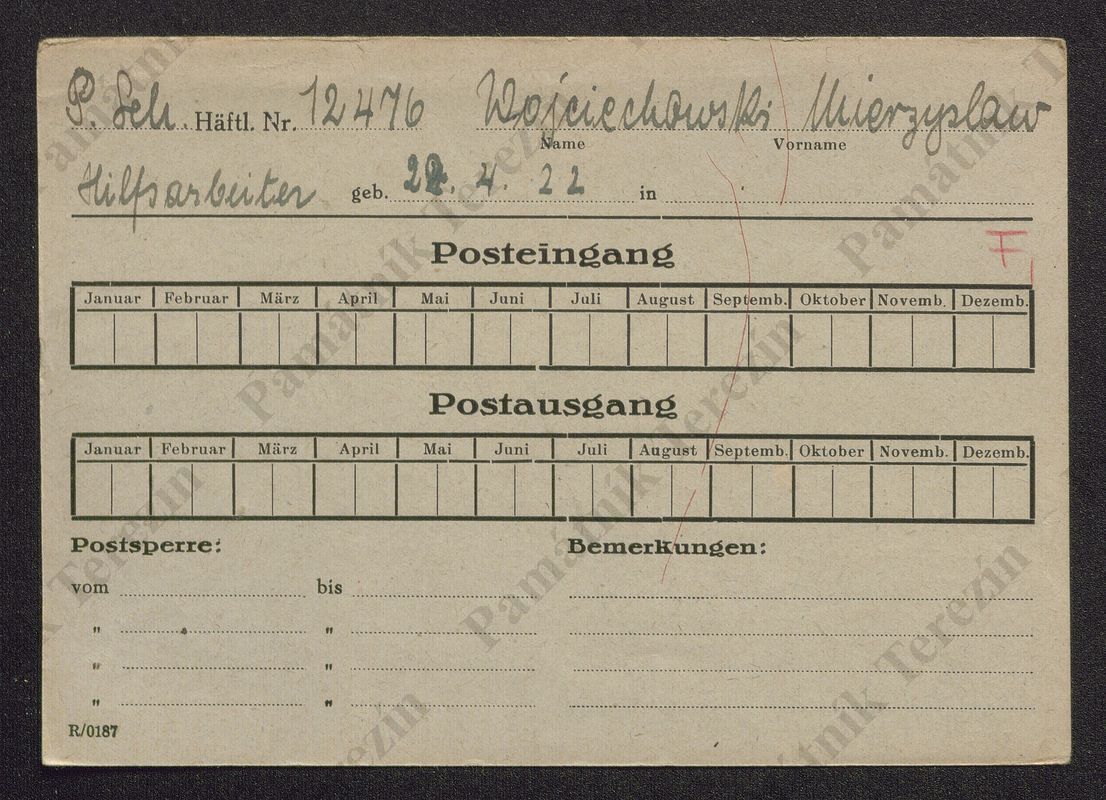 P. Sch. Häftl. Nr. 12476 Wojciechowski Mierzyslaw
Name Vorname
Hilfsarbeiter geb. 4. 22 in
F
Posteingang
Januar Februar März April Mai Juni Juli August Septemb. Oktober Novemb. Dezemb.
Postausgang
Januar Februar März April Mai Juni Juli August Septemb. Oktober Novemb. Dezemb.
Postsperre: Bemerkungen:
vom bis
" "
" "
" "
R/0187
Památník Terezín